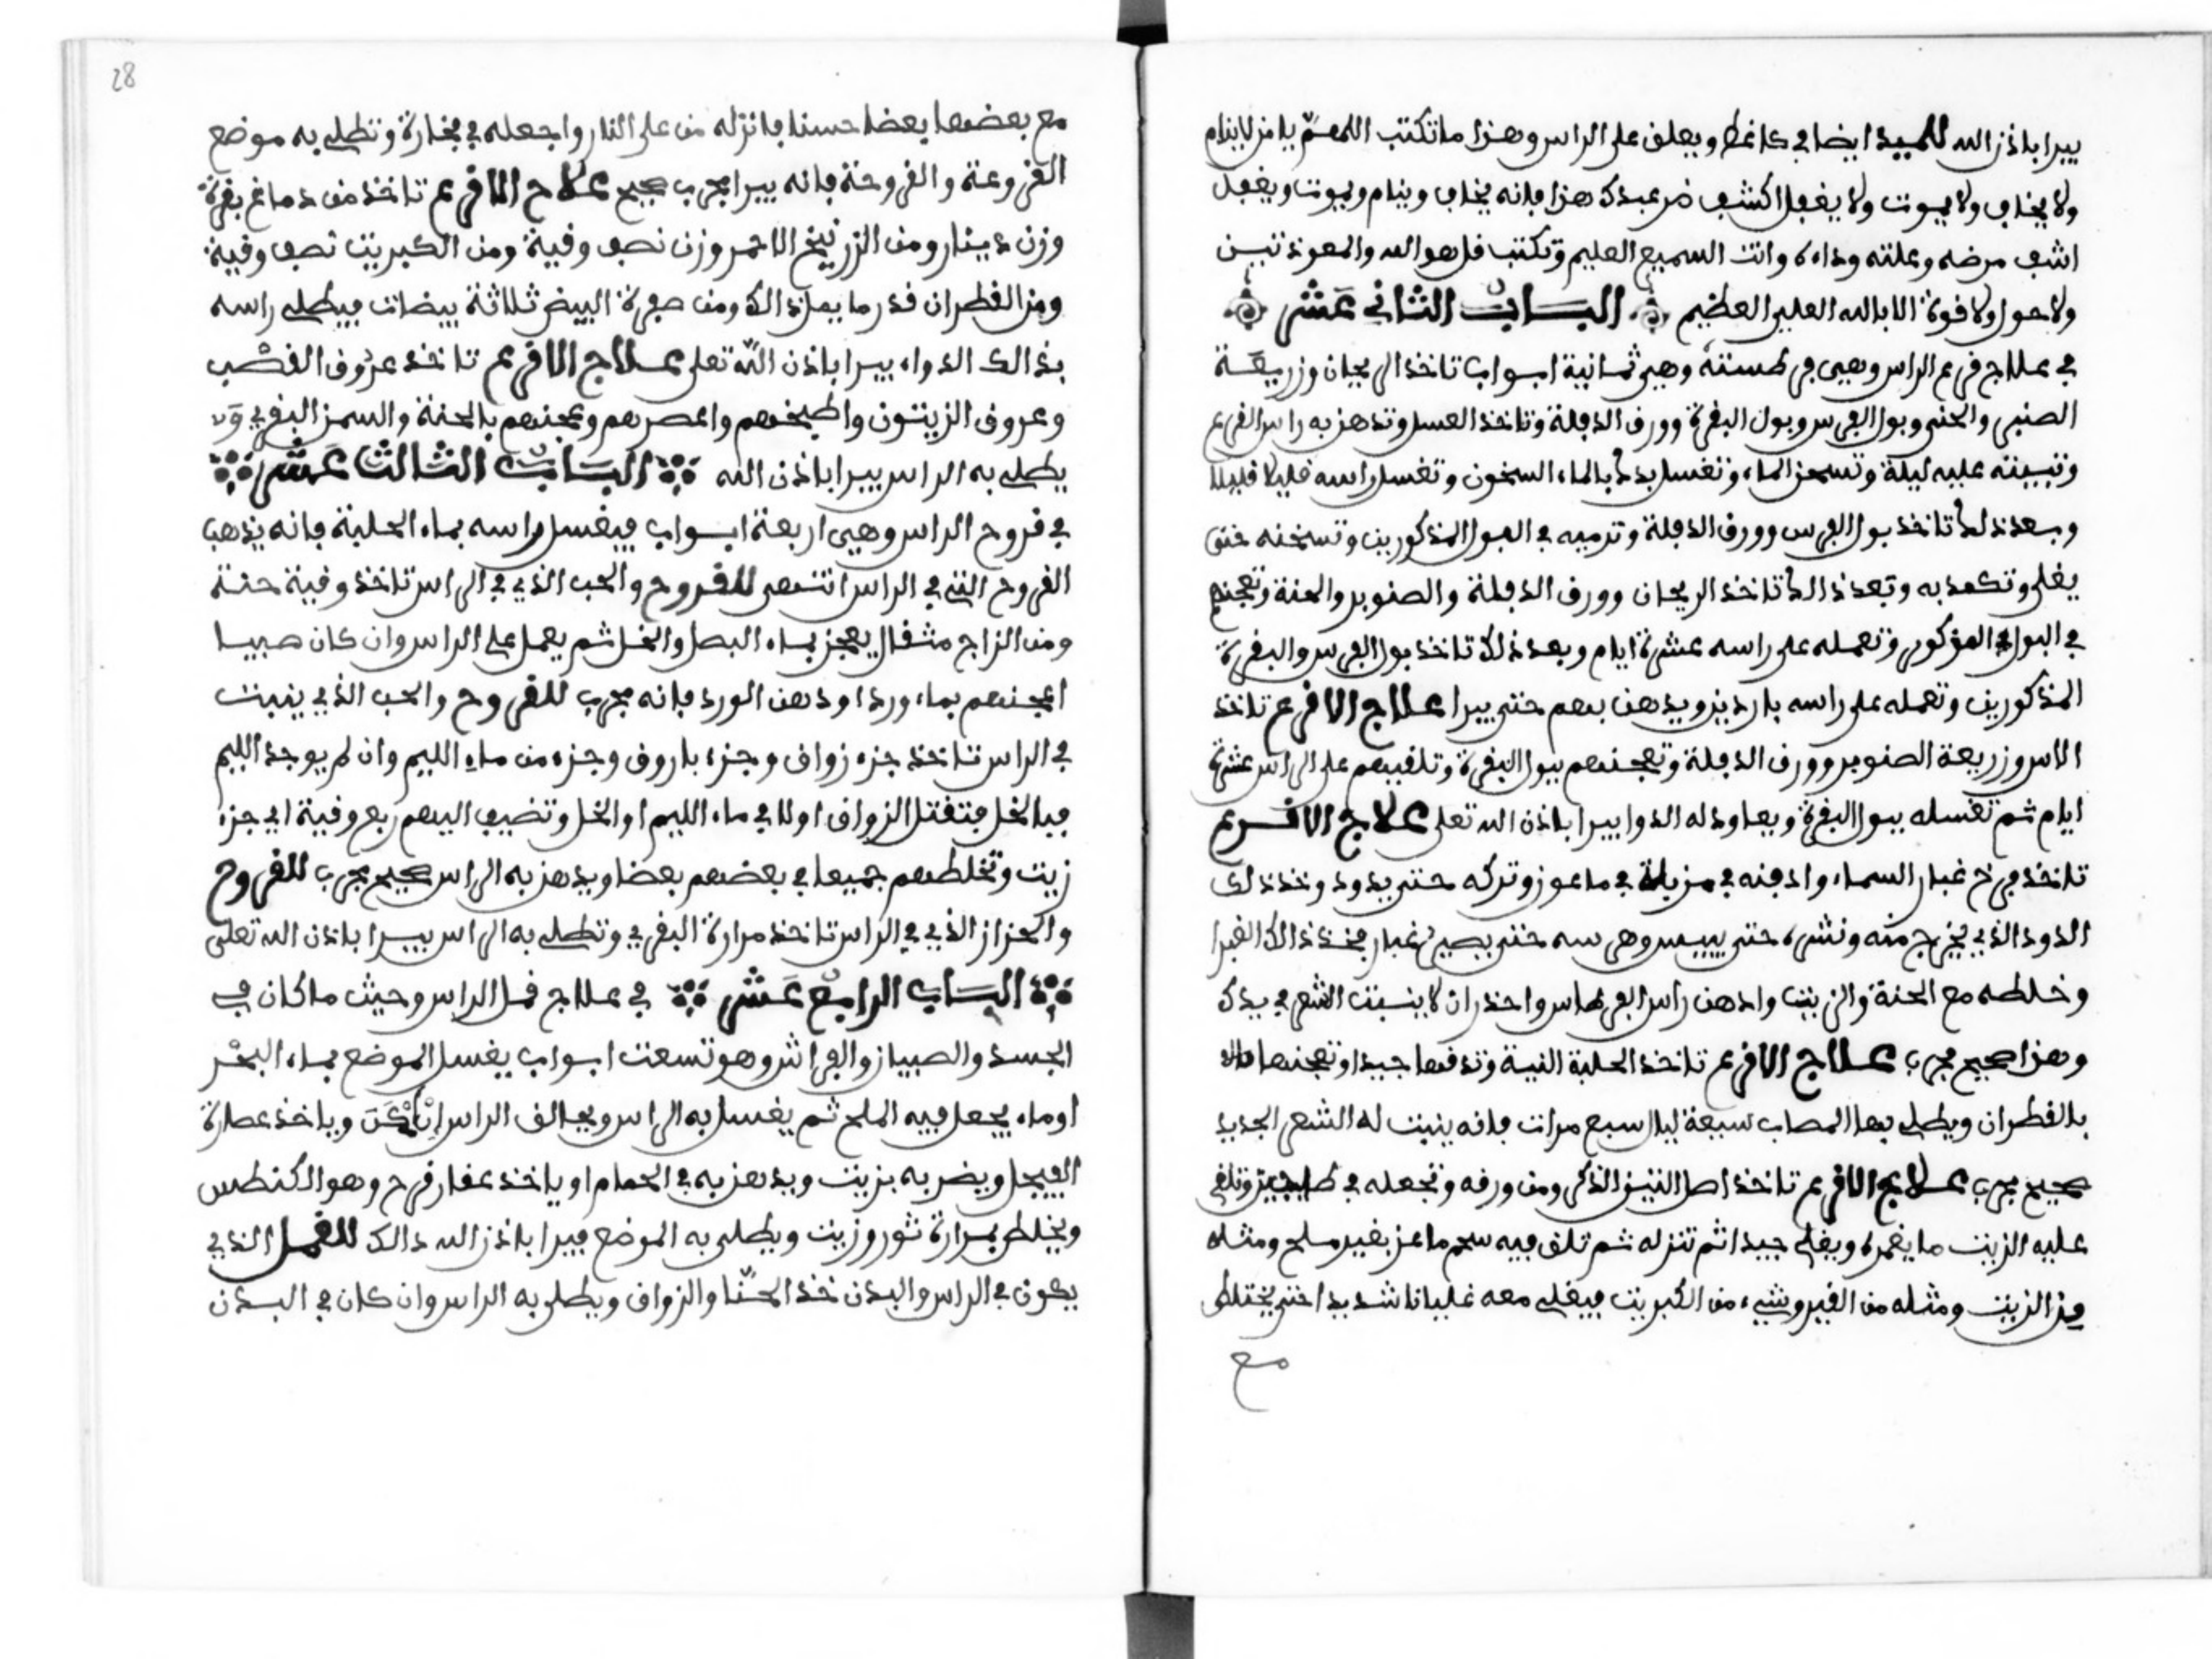 يبرا باذن الله للميد ايضا في كاغط ويعلق على الراس وهذا ما تكتب اللهم يا من لا ينام
ولا يخاف ولا يموت ولا يغفل اكشف ضر عبدك هذا فانه يخاف وينام ويموت ويغفل
اشف مرضه وعلته وداءه وانت السميع العليم وتكتب قل هو الله والمعوذتين
ولا حول ولا قوة الا بالله العلي العظيم الباب الثاني عشر
في علاج قرع الراس وهي ثمانية ابواب تاخذ الريحان وزريعة
والحنى وبول الفرس وبول البقرة وورق الدفلة وتاخذ العسل وتدهن به راس القرع
وتبيته عليه ليلة وتسخن الماء وتغسل يدك بالماء السخون وتغسل راسه قليلا قليلا
وبعد ذلك تاخذ بول الفرس وورق الدفلة وترميه في البول المذكورين وتسخنه حتى
يغلى وتكمد به وبعد ذالك تاخذ الريحان وورق الدفلة والصنوبر والحنة وتعجنهم
في البول المذكور وتعمله على راسه عشرة ايام وبعد ذلك تاخذ بول الفرس والبقرة
المذكورين وتعمله على راسه باردين ويدهن بهم حتى يبرا علاج الاقرع تاخذ
الاس وزريعة الصنوبر وورق الدفلة وتعجنهم ببول البقرة وتلقيهم على الراس عشرة
ايام ثم تغسله ببول البقرة ويعاود له الدوا يبرا باذن الله تعلى علاج الاقرع
تاخذ فرخ غبار السماء وادفنه في مزبلة في ماعوز وتركه حتى يدود وخذ ذلك
الدود الذي يخرج منه ونشره حتى ييبس وهرسه حتى يصير غبار فخذ ذالك الغبرا
وخلطه مع الحنة والزيت وادهن راس واحذر ان لا ينبت الشعر في يدك
وهذا صحيح مجرب علاج الاقرع تاخذ الحلبة النية وتدقها جيدا وتعجنها
بالقطران ويطلى بها المصاب سبعة ليال سبع مرات فانه ينبت له الشعر الجديد
صحيح مجرب علاج الاقرع تاخذ اصل التين الذكر ومن ورقه وتجعله في وتلقي
عليه الزيت ما يغمره ويغلى جيدا ثم تنزله ثم تلق فيه شحم ماعز بغير ملح ومثله
من الزيت ومثله من القير وشيء من الكبريت فيغلى معه غليانا شديدا حتى يختلط
مع
28
مع بعضها بعضا حسنا فانزله من على النار واجعله في فخارة وتطلي به موضع
القروعة والقروحة فانه يبرا مجرب صحيح علاج الاقرع تاخذ من دماغ بقرة
وزن دينار ومن الزرنيخ الاحمر وزن نصف وقية ومن الكبريت نصف وقية
ومن القطران قدر ما يعل ذالك ومن صفرة البيض ثلاثة بيضات فيطلى راسه
بذالك الدواء يبرا باذن الله تعلى علاج الاقرع تاخذ عروق القصب
وعروق الزيتون واطبخهم واعصرهم وعجنهم بالحنة والسمن البقري
يطلى به الراس يبرا باذن الله الباب الثالث عشر
في قروح الراس وهي اربعة ابواب فيغسل راسه بماء الحلبة فانه يذهب
القروح التي في الراس انتهى للقروح والحب الذي في الراس تاخذ وقية حنة
ومن الزاج مثقال يعجن بماء البصل والخل ثم يعمل على الراس وان كان صبيا
اعجنهم بماء ورد او دهن الورد فانه مجرب للقروح والحب الذي ينبت
في الراس تاخذ جزء زواق وجزء باروق وجزء من ماء الليم وان لم يوجد الليم
فبالخل فتقتل الزواق اولا في ماء الليم او الخل وتضيف اليهم ربع وقية اي جزء
زيت وتخلطهم جميعا في بعضهم بعضا ويدهن به الراس صحيح مجرب للقروح
والحزاز الذي في الراس تاخذ مرارة البقري وتطلى به الراس يبرا باذن الله تعلى
الباب الرابع عشر في علاج قمل الراس وحيث ما كان في
الجسد والصبيان والفراش وهو تسعت ابواب يغسل الموضع بماء البحر
او ماء يجعل فيه الملح ثم يغسل به الراس ويحالق الراس وياخذ عصارة
الفيجل ويضربه بزيت ويدهن به في الحمام او ياخذ عقار قرح وهو الكنطس
ويخلط بمرارة ثور وزيت ويطلى به الموضع فيبرا باذن الله ذالك للقمل الذي
يكون في الراس والبدن خذ الحنا والزواق ويطلى به الراس وان كان في البدن